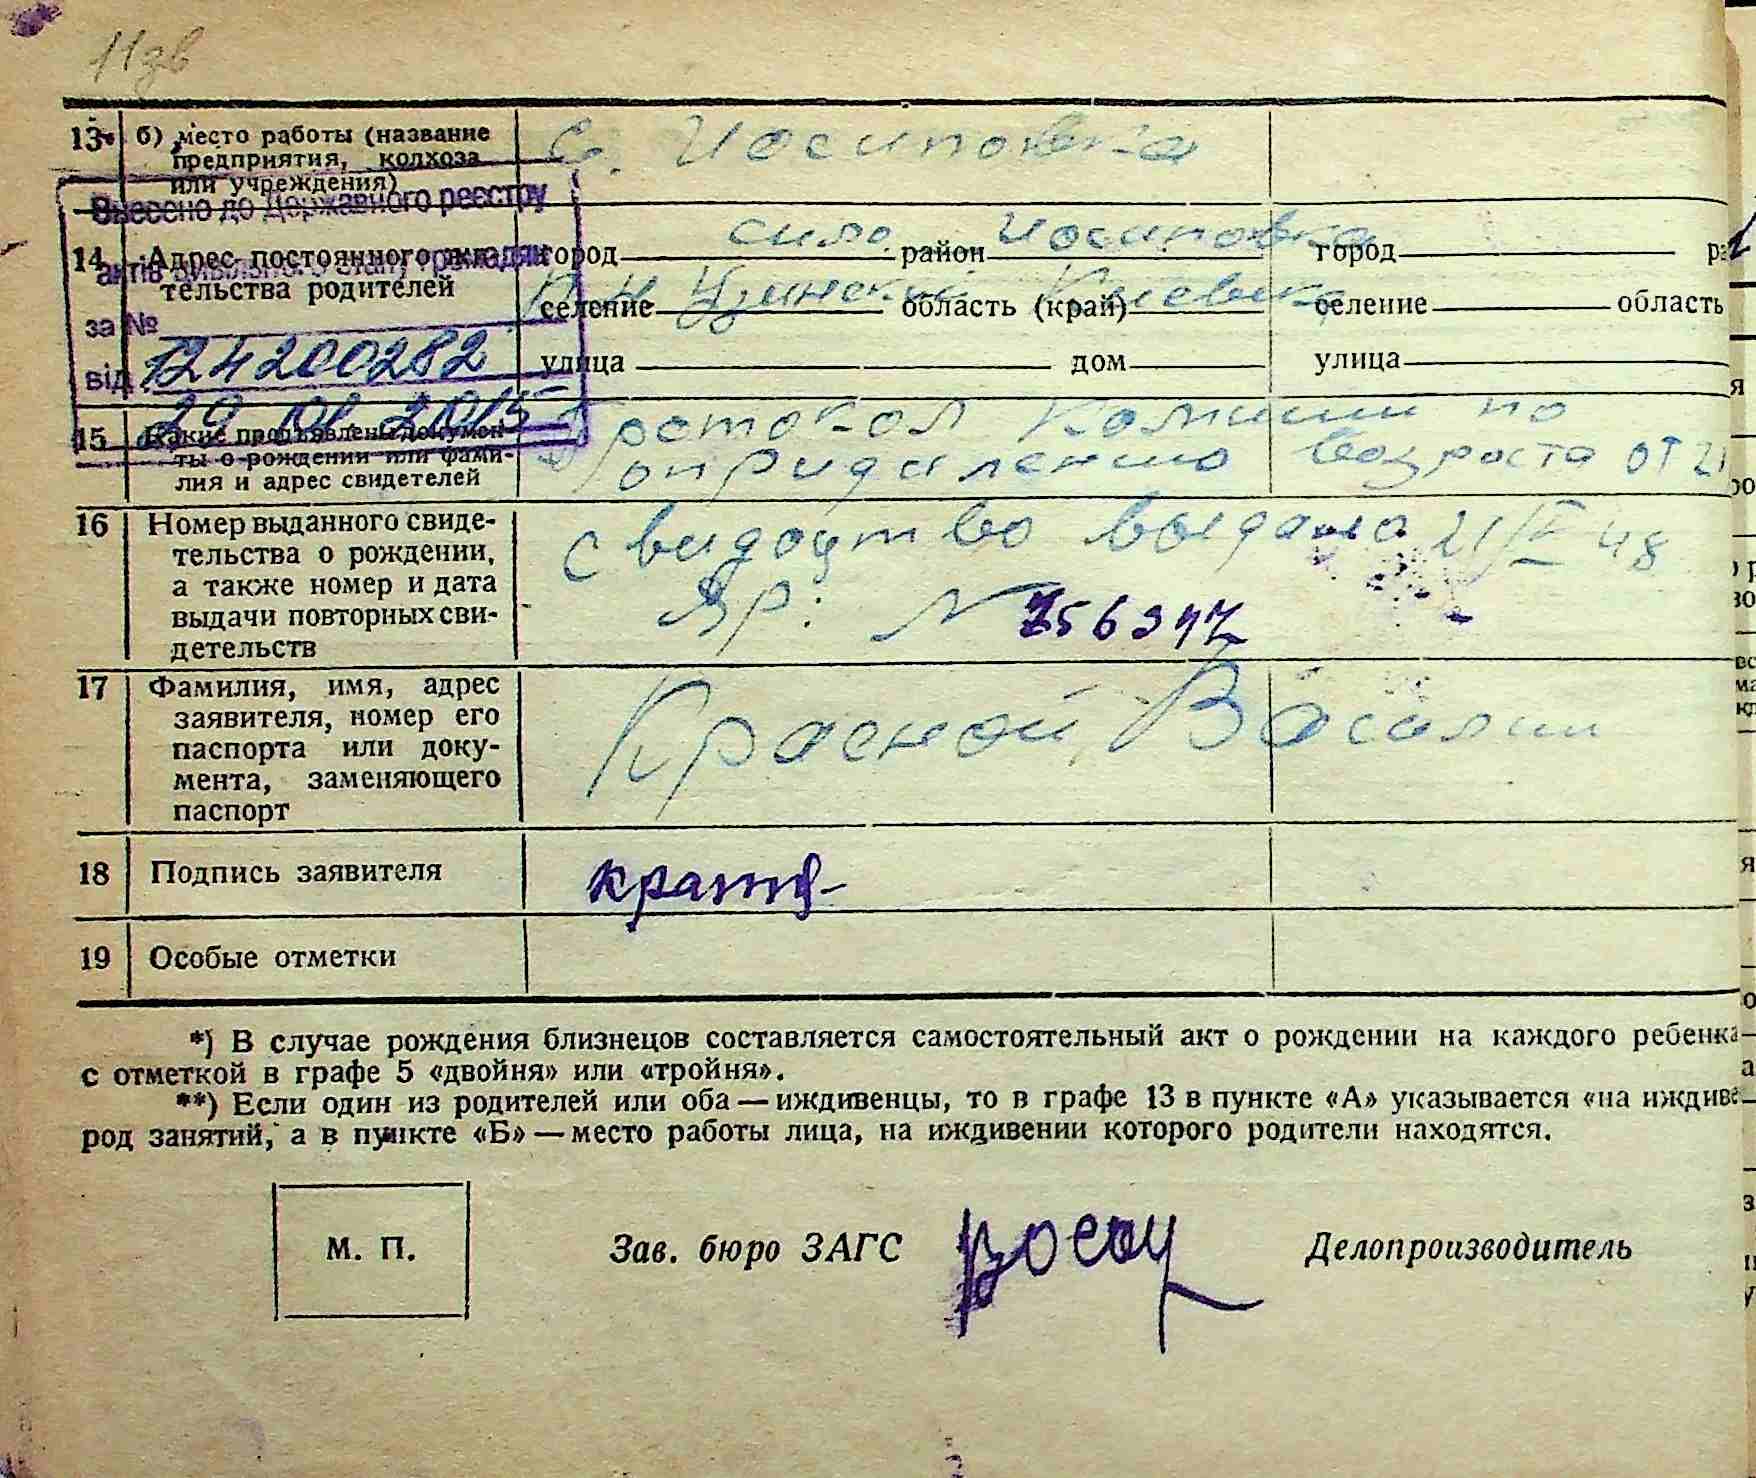 11зв
13. б) место работы (название предприятия, колхоза или учреждения)
С. Иосиповка
Внесено до Державного реєстру
актів цивільного стану громадян
за №
124200282
від
29 01 2015
14 Адрес постоянного жительства родителей
сило Иосиповка
город район
Р-н Узинский Киевска
селение область (край)
улица дом
город
селение область
улица
15 Какие предъявлены документы о рождении или фамилия и адрес свидетелей
Протокол Комисии по
опридилению возроста от 21
16 Номер выданного свидетельства о рождении, а также номер и дата выдачи повторных свидетельств
Свидоцтво выдано 21/V 48
ЯР: № 756347
17 Фамилия, имя, адрес заявителя, номер его паспорта или документа, заменяющего паспорт
Красной Василии
18 Подпись заявителя
19 Особые отметки
*) В случае рождения близнецов составляется самостоятельный акт о рождении на каждого ребенка
с отметкой в графе 5 «двойня» или «тройня».
**) Если один из родителей или оба — иждивенцы, то в графе 13 в пункте «А» указывается «на иждиве
род занятий, а в пункте «Б» — место работы лица, на иждивении которого родители находятся.
М. П.
Зав. бюро ЗАГС
Делопроизводитель